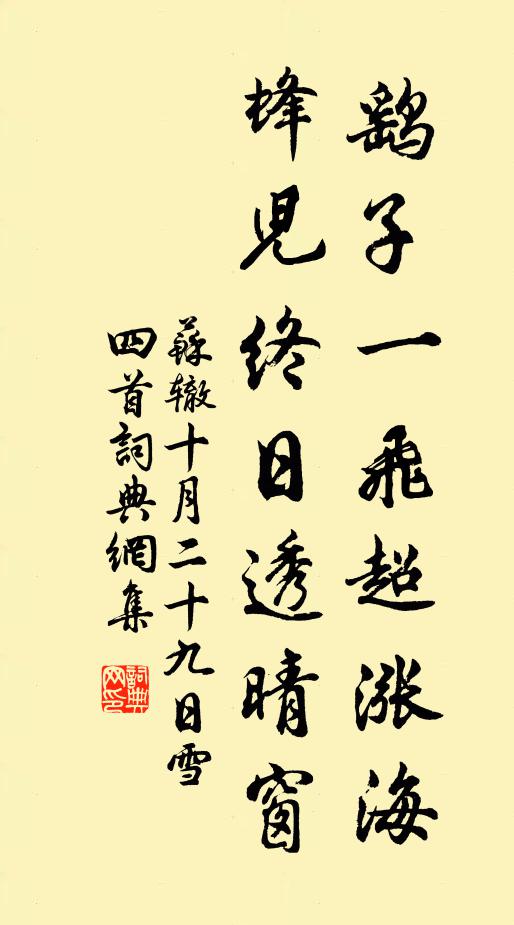 鷂子一飛超漲海
蜂兒終日透晴窗
蘇辙十月二十九日雪
四首詞典網集
詞典
网印